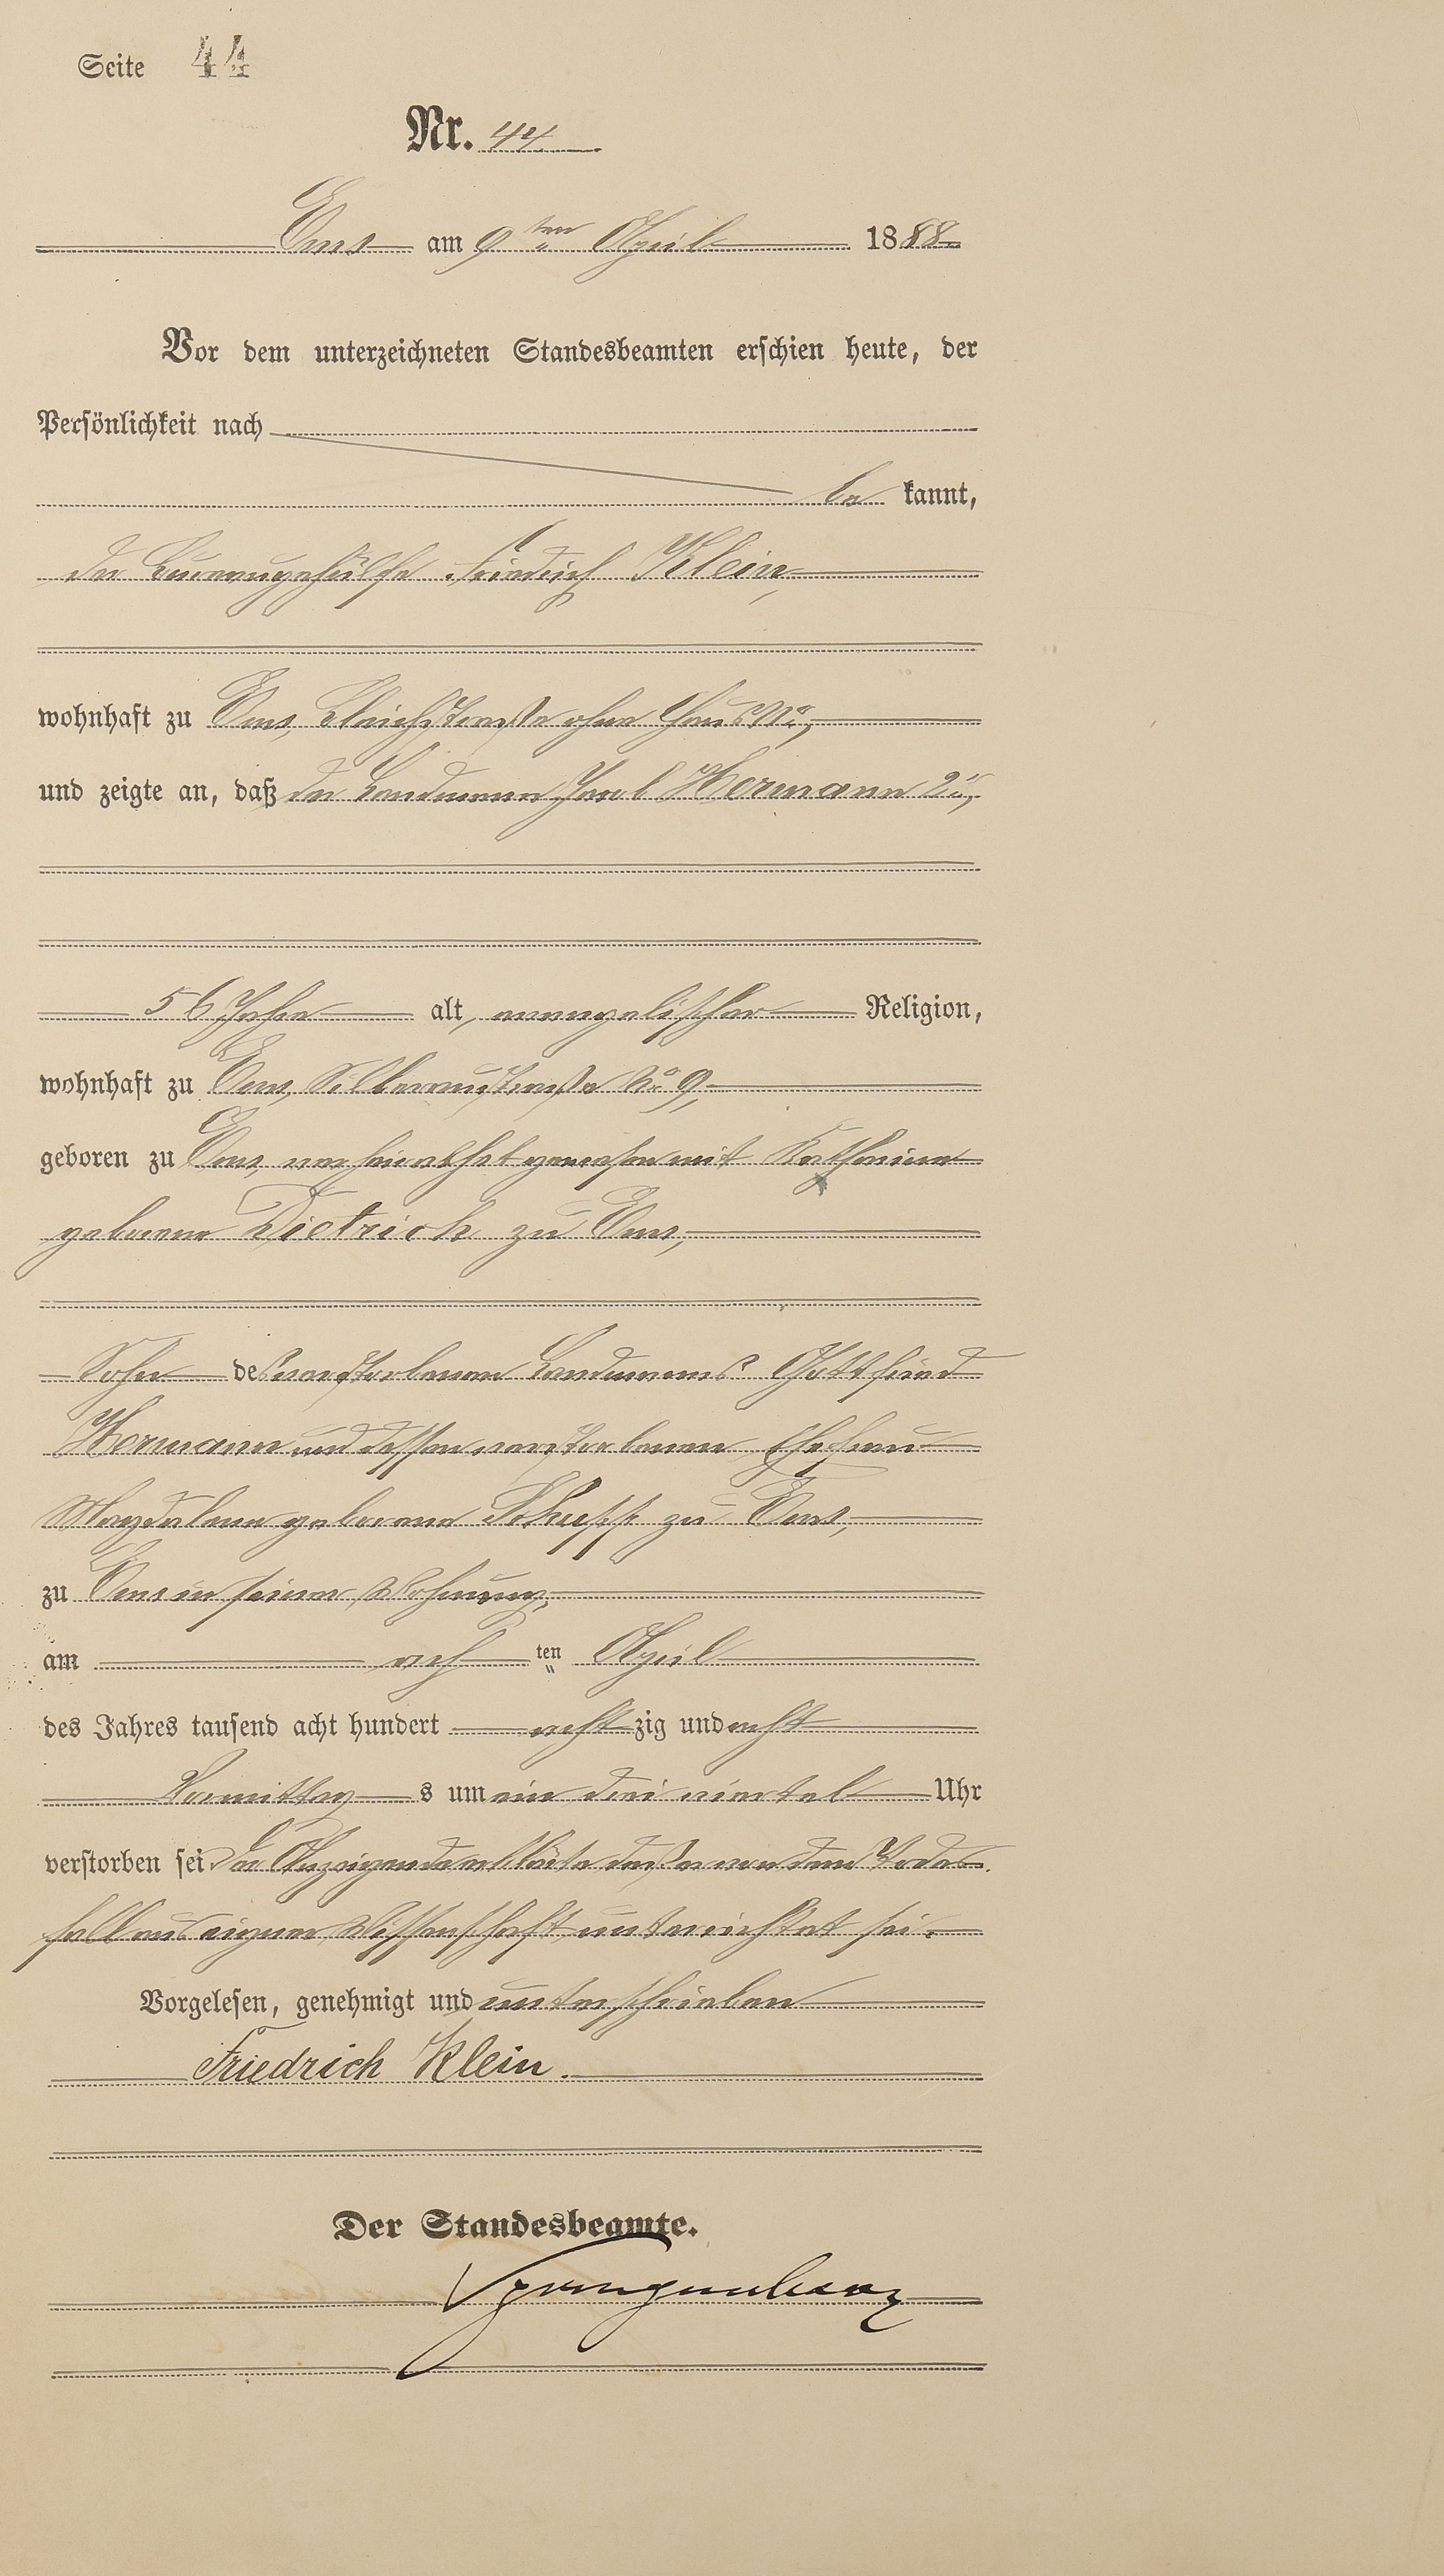 Seite 44
Nr. 44
Ems am 9ten April 1888
Vor dem unterzeichneten Standesbeamten erschien heute, der
Persönlichkeit nach
be kannt,
der Bureaugehülfe Friedrich Klein,
wohnhaft zu Ems, Bleichstraße ohne Haus No,
und zeigte an, daß der Landmann Jacob Hermann 2r,
56 Jahre alt, evangelischer Religion,
wohnhaft zu Ems, Silberaustraße No 9,
geboren zu Ems, verheirathet gewesen mit Katharina
geborene Dietrich zu Ems,
Sohn des verstorbenen Landmanns Gottfried
Hermann und dessen verstorbenen Ehefrau
Magdalena geborene Schupp zu Ems,
zu Ems in seiner Wohnung,
am ach ten April
des Jahres tausend acht hundert acht zig und acht
Vormittag s um ein drei viertel Uhr
verstorben sei. Der Anzeigende erklärte daß er von dem Todes-
fall aus eigner Wissenschaft unterrichtet sei.
Vorgelesen, genehmigt und unterschrieben
Friedrich Klein.
Der Standesbeamte.